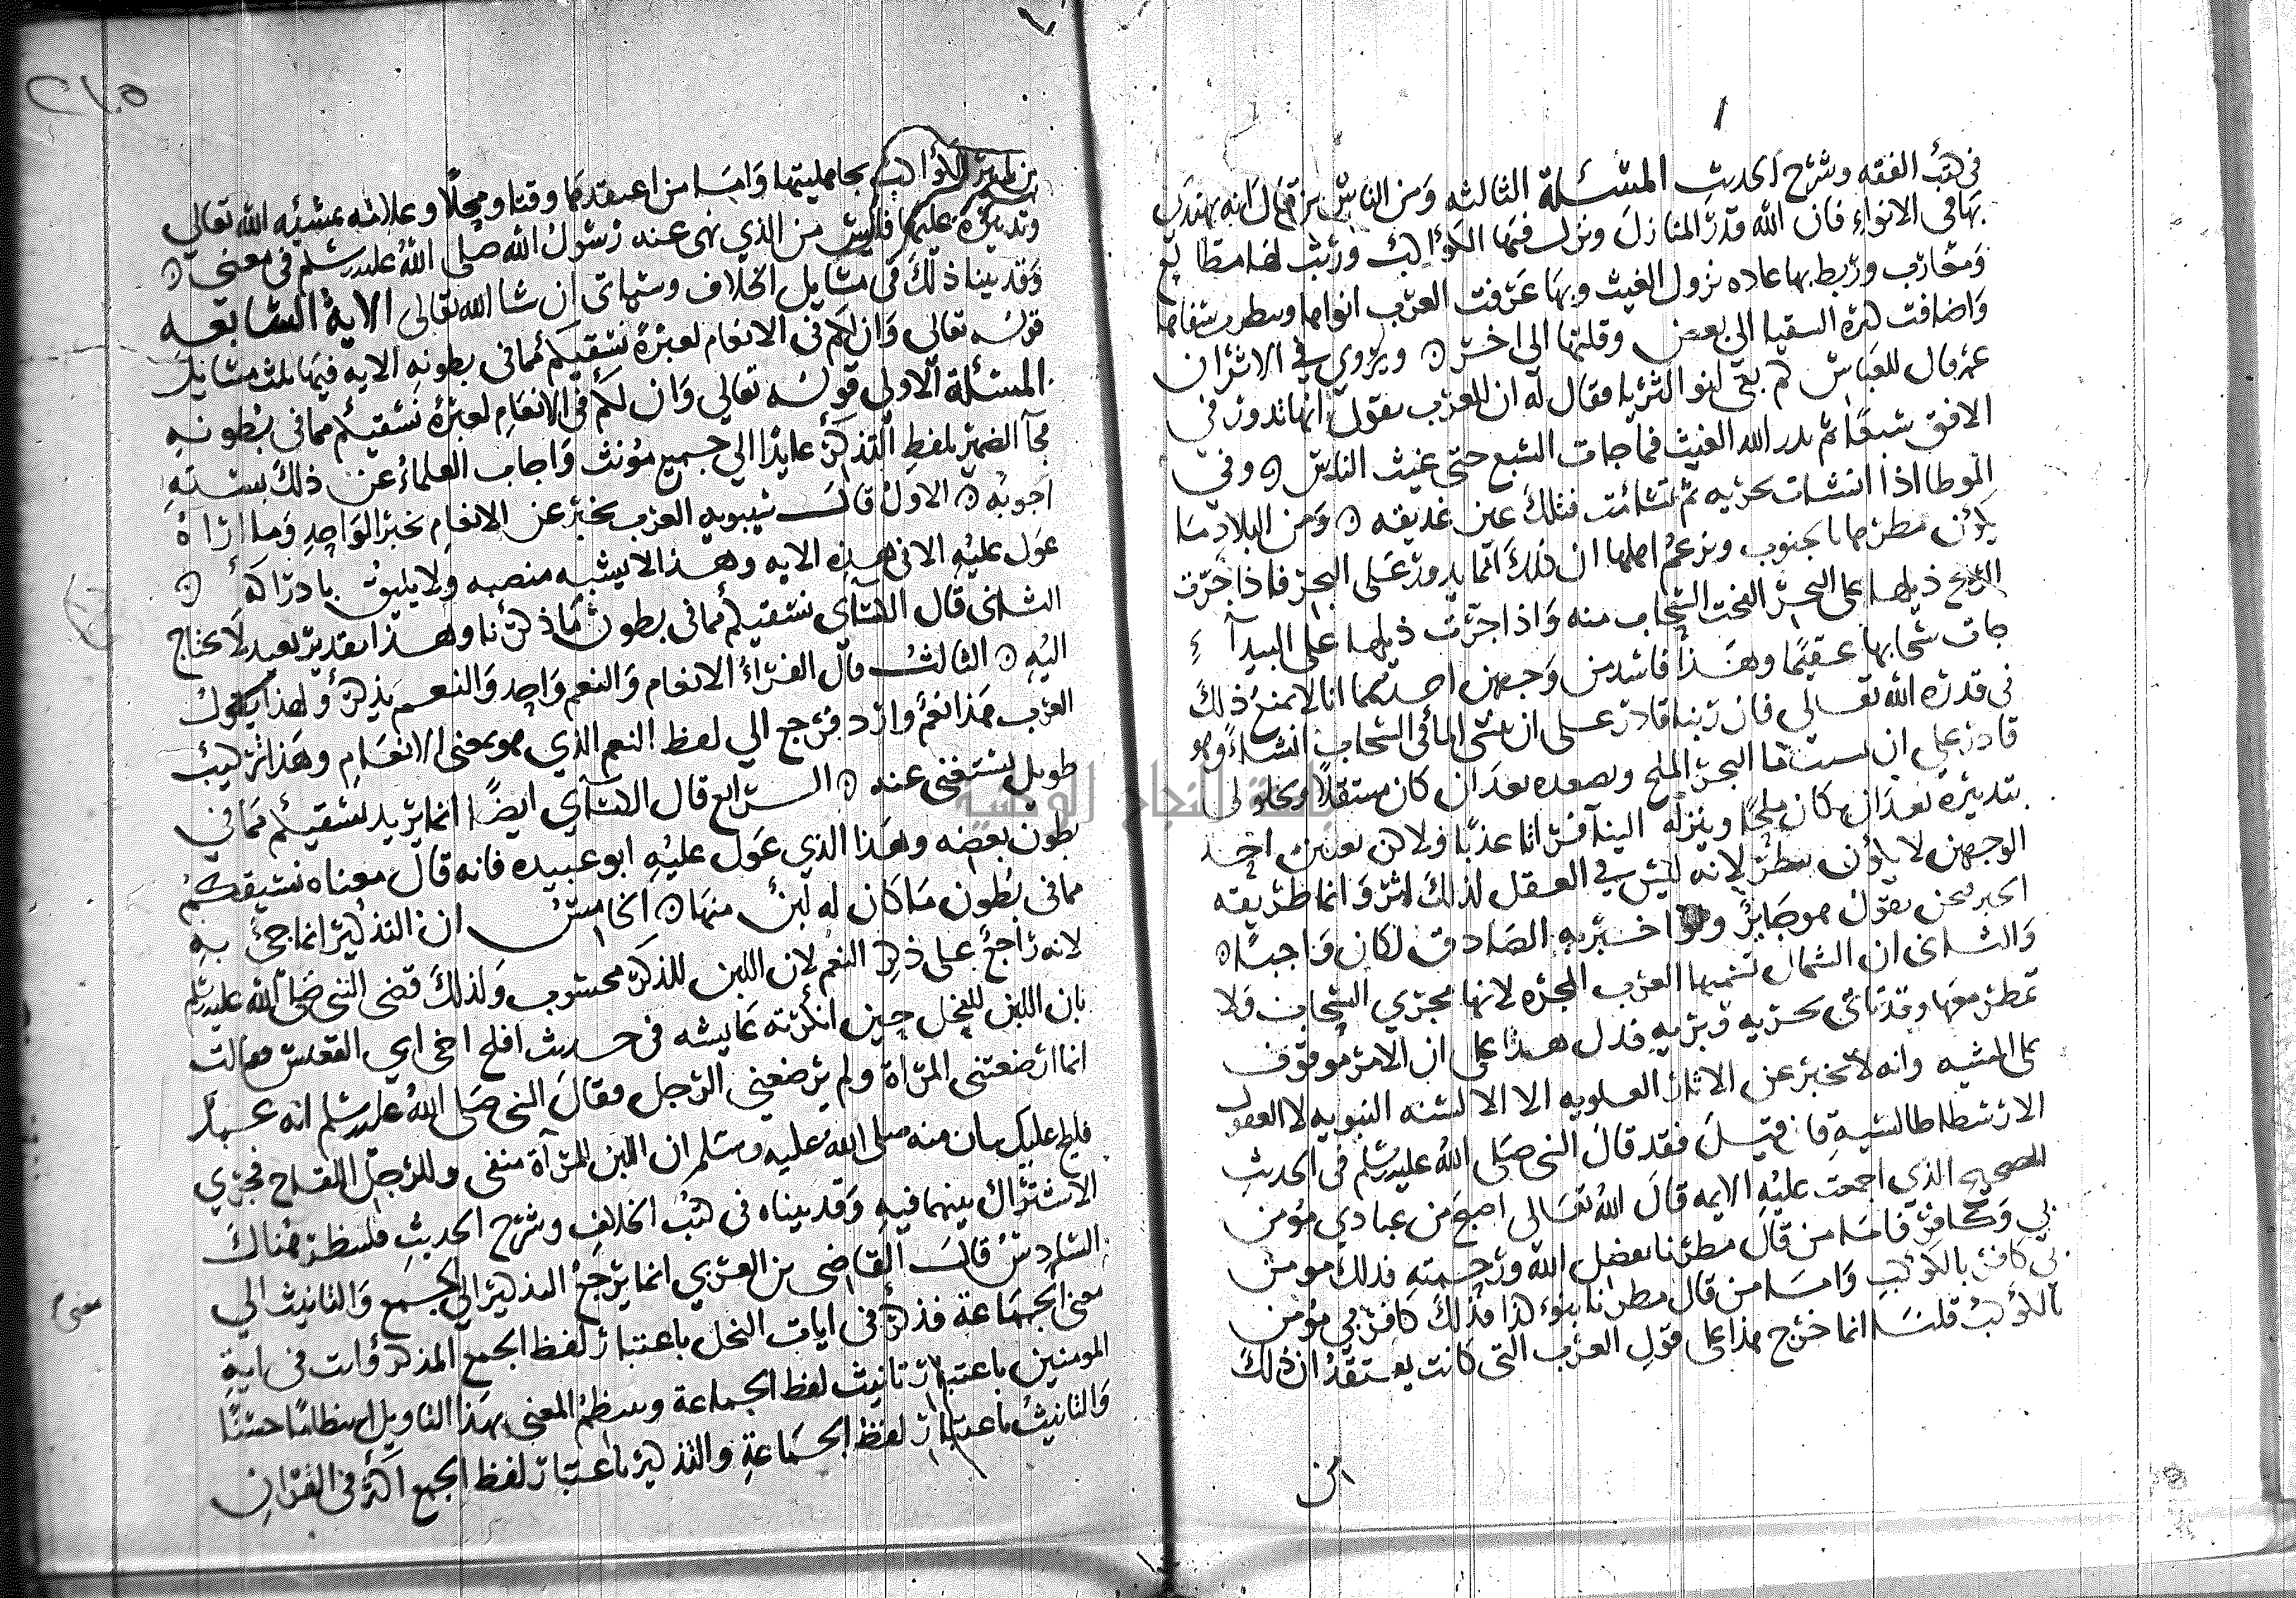 في كتب الفقه وشرح الحديث المسئلة الثالثه ومن الناس من قال انه يهتدى
بها في الانواء فان الله قدر المنازل ونزل فيها الكواكب ورتب لها مطالع
ومغارب وربط بها عاده نزول الغيث وبها عرفت العرب انواها وسطرت سقاها
واضافت كثرة السقيا الى بعض وقلتها الى اخر ويروى في الاثر ان
عمر قال للعباس كم بقى لنو الثريا فقال له ان العرب تقول انها تدور في
الافق سبعا ثم يدر الله الغيث فما جات السبع حتى غيث الناس وفي
الموطا اذا انشات بحريه ثم تشائمت فتلك عين غديقه ومن البلاد ما
يكون مطرها بالجنوب ويزعم اهلها ان ذلك انما يدور على البحر فاذا جرت
الريح ذيلها على البحر القحت السحاب منه واذا جرت ذيلها على البيداء
جات سحابها عقيما وهذا فاسد من وجهين احدهما انا لا نمنع ذلك
في قدرة الله تعالى فان ربنا قادر على ان ينشى الما في السحاب انشاء وهو
قادر على ان يسبب ما البحر الملح ويصعده بعد ان كان مستفلا ويحلو لى
بتدبيره بعد ان كان ملحا وينزله الينا فراتا عذبا ولكن تعيين احد
الوجهين لا يكون بنظر لانه ليس في العقل لذلك اثر وانما طريقه
الخبر فنحن نقول هو جايز ولو اخبر به الصادق لكان واجبا
والثانى ان الشمال تسميها العرب المجره لانها تجري السحاب ولا
تمطر معها وقد تاتى بحريه وبريه فدل هذا على ان الامر موقوف
على المشيه وانه لا تخبر عن الاثار العلويه الا السنه النبويه لا العقول
الارسطاطاليسيه فان قيل فقد قال النبى صلى الله عليه وسلم فى الحديث
الصحيح الذي اجمعت عليه الايمه قال الله تعالى اصبح من عبادي مؤمن
بي وكافر فاما من قال مطرنا بفضل الله ورحمته فذلك مومن
بي كافر بالكوكب واما من قال مطرنا بنوء كذا فذلك كافر بي مؤمن
بالكوكب قلنا انما خرج هذا على قول العرب التى كانت يعتقد ان ذلك
من
من تاثير الكواكب بجاهليتها واما من اعتقدها وقتا ومحلا وعلامه بمشيئه الله تعالى
وتدبيره عليها فليس من الذي نهى عنه رسول الله صلى الله عليه وسلم فى معنى
وقد بينا ذلك في مسايل الخلاف وسياتى ان شا الله تعالى الاية السابعه
قوله تعالى وان لكم فى الانعام لعبرة نسقيكم مما فى بطونه الايه فيها ثلث مسايل
المسئلة الاولى قوله تعالى وان لكم فى الانعام لعبرة نسقيكم مما فى بطونه
جآ الضمير بلفظ التذكير عايدا الى جمع مؤنث واجاب العلماء عن ذلك بستة
اجوبه الاول قال سيبويه العرب تخبر عن الانعام بخبر الواحد وما اراه
عول عليه الا فى هذه الايه وهذا لا يشبه منصبه ولا يليق بادراكه
الثانى قال الكسآى نسقيكم مما فى بطون ما ذكرنا وهذا تقدير بعيد لا يحتاج
اليه الثالث قال الفراء الانعام والنعم واحد والنعم يذكر ولهذا يقول
العرب هذا نعم وارد فرجع الى لفظ النعم الذي هو بمعنى الانعام وهذا تركيب
طويل يستغنى عنه الرابع قال الكسآي ايضا انما يريد نسقيكم مما في
بطون بعضه وهذا الذي عول عليه ابو عبيده فانه قال معناه نسقيكم
مما فى بطون ما كان له لبن منها الخامس ان التذكير انما جئ به
لانه راجع على ذكر النعم لان اللبن للذكر محسوب ولذلك قضى النبى صلى الله عليه وسلم
بان اللبن للفحل حين انكرته عايشه فى حديث افلح اخى ابي القعيس فقالت
انما ارضعتنى المرأة ولم يرضعنى الرجل فقال النبى صلى الله عليه وسلم انه عمك
فليلج عليك بيان منه صلى الله عليه وسلم ان اللبن للمرآة سقى وللرجل اللقاح فجرى
الاشتراك بينهما فيه وقد بيناه فى كتب الخلاف وشرح الحديث فلينظر هناك
السادس قال القاضى بن العربي انما يرجع التذكير الى الجمع والتانيث الى
معنى الجماعة فذكر فى ايات النحل باعتبار لفظ الجمع المذكر وات فى اية
معنى
المومنين باعتبار تانيث لفظ الجماعة وينتظم المعنى بهذا التاويل انتظاما حسنا
والتانيث باعتبار لفظ الجماعة والتذكير باعتبار لفظ الجمع اكثر فى القران